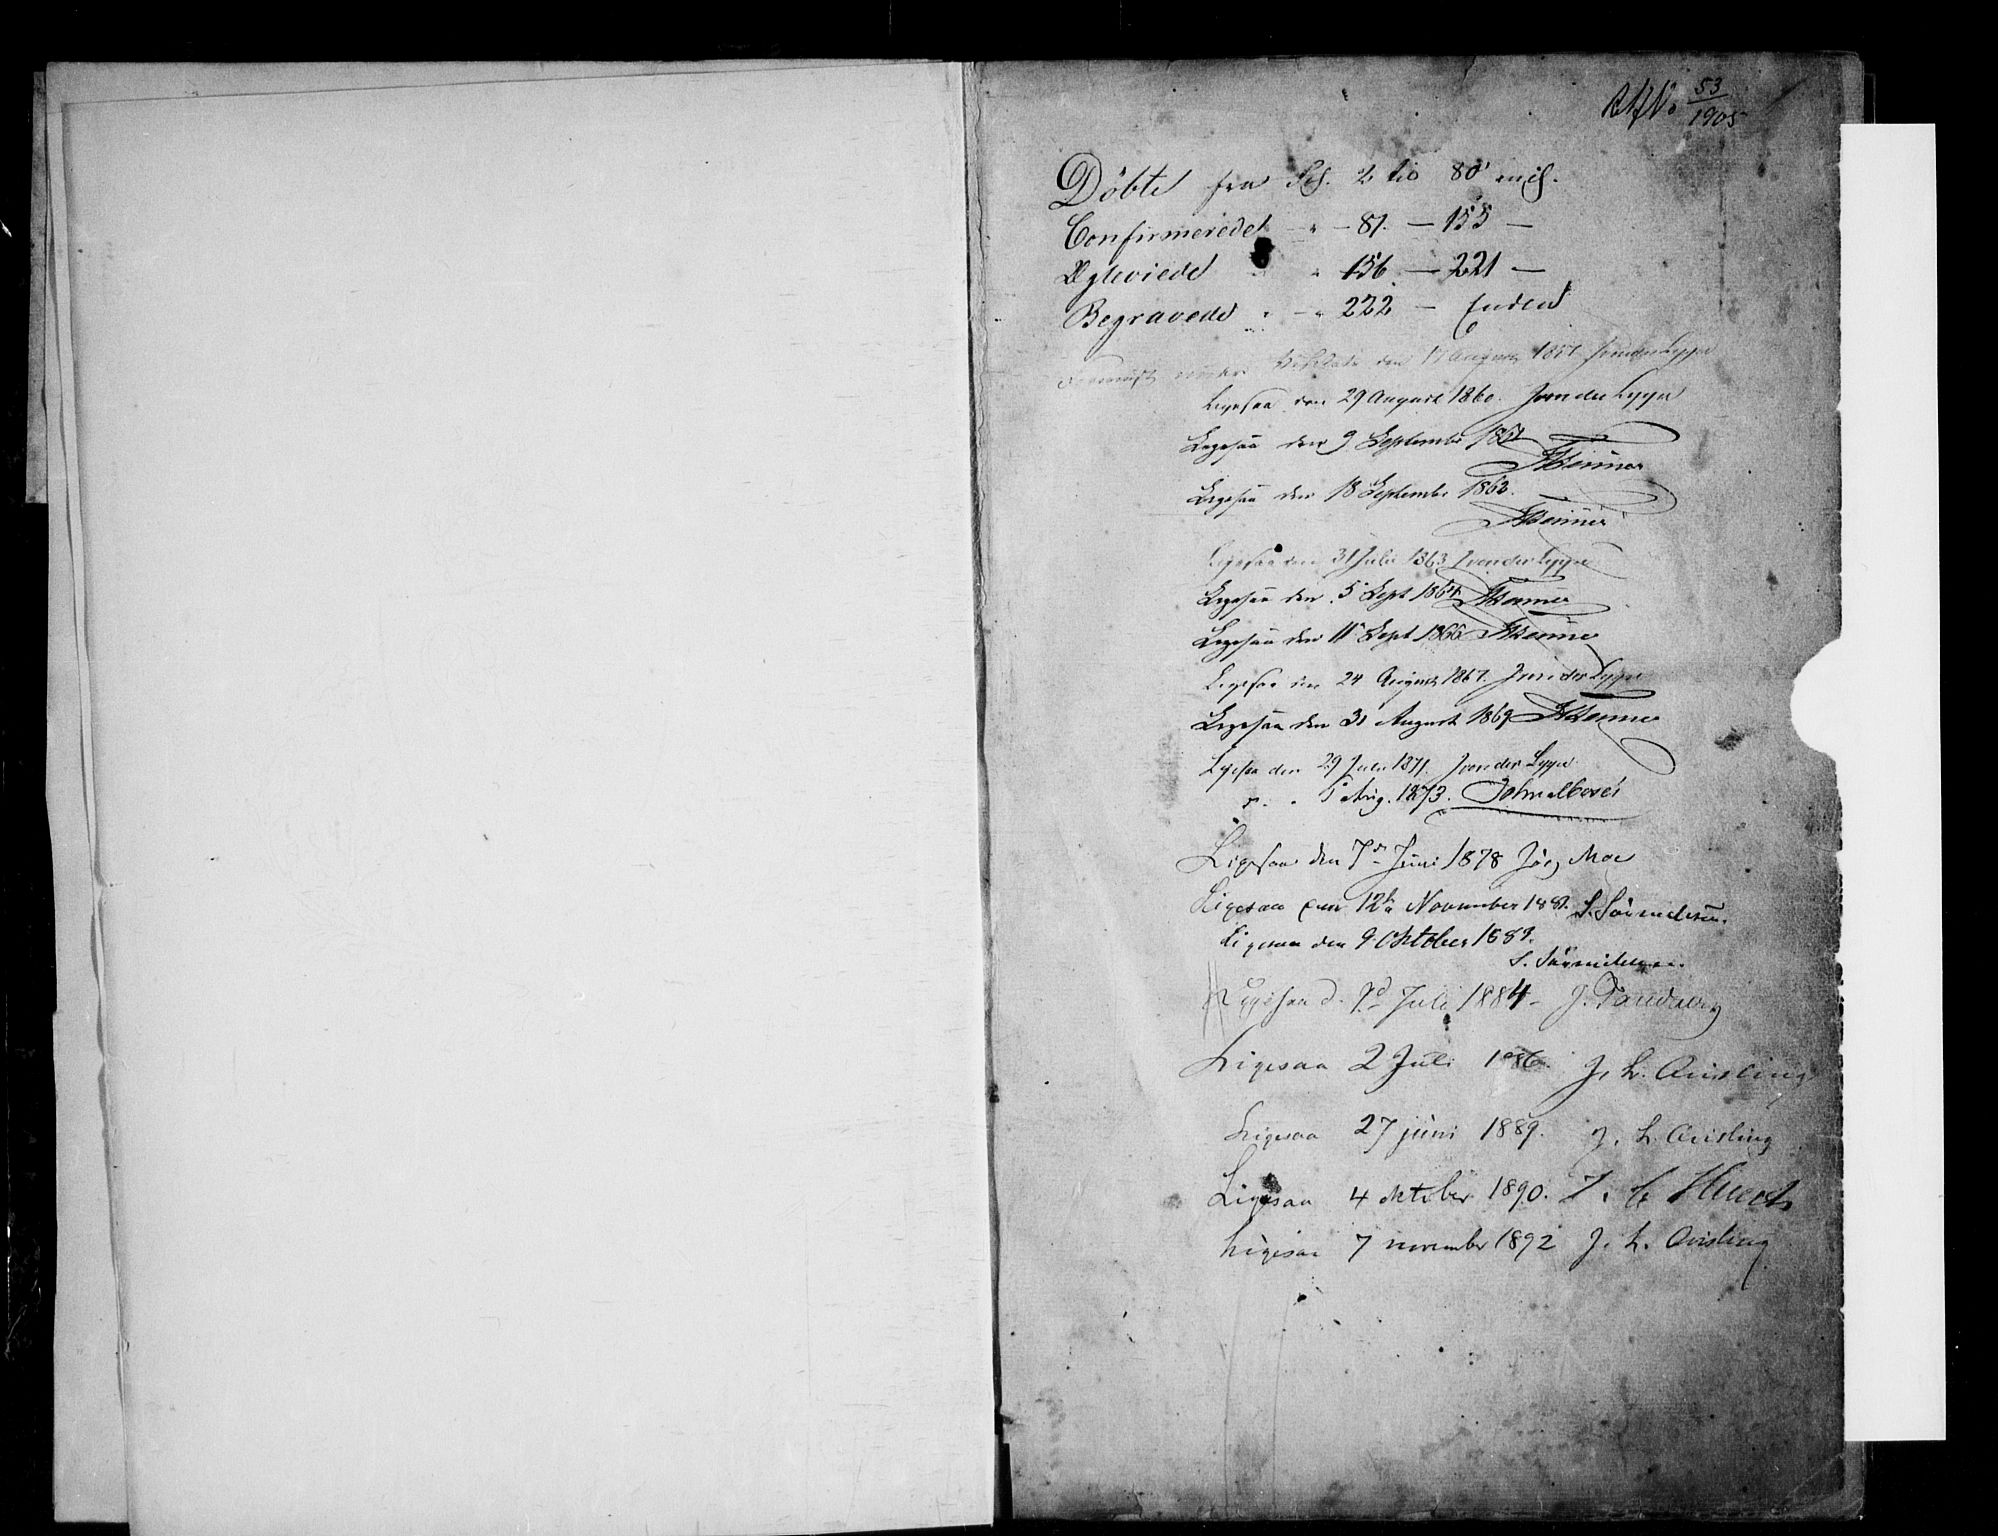 53
1905
Döbte fra Pag. 2 til 80 incl.
Confirmerede " - 81. - 155 -
Ægteviede " 156 - 221 -
Begravede " - " 222 - Enden
den 17 August 1857 J von der Lippe
Ligesaa den 29 August 1860. J von der Lippe
Ligesaa den 9 September 1861
Ligesaa den 18 September 1862.
Ligesaa den 31 Juli 1863 J von der Lippe
Ligesaa den 5 Sept 1864
Ligesaa den 11 Sept 1866
Ligesaa den 24 August 1867. J von der Lippe
Ligesaa den 31 August 1869
Ligesaa den 29 Juli 1871. J von der Lippe
" " 5 Aug. 1873.
Ligesaa den 7de Juni 1878 Jörg. Moe
Ligesaa den 12te November 1881. S. Sörenssen.
Ligesaa den 9 Oktober 1883.
S. Sörenssen.
Ligesaa d. 9d Juli 1884 - J. Sandberg
Ligesaa 2 Juli 1886. J. L. Qvisling
Ligesaa 27 juni 1889. J. L. Qvisling
Ligesaa 4 oktober 1890. J. C. Heuch
Ligesaa 7 november 1892 J. L. Qvisling